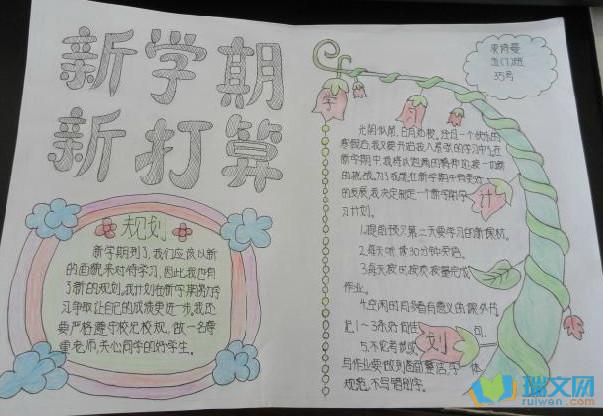 新学期
新打算
规划
新学期到了,我们应该以新
的面貌来对待学习,因此,我也有
了新的规划。我计划在新学期努力学
习,争取让自己的成绩更进一步。我还
要严格遵守校纪校规,做一名尊
重老师,关心同学的好学生。
五(7)班
35号
学
习
计
划
光阴似箭,日月如梭。经过一个快乐的
寒假后,我又要开始投入紧张的学习中了。在
新学期中,我将以饱满的精神迎接一切新
的挑战。为了我能在新学期中有更好
的发展,我决定制定一个新学期学
习计划。
1.提前预习第二天要学习的新课村。
2.每天听读30分钟英语。
3.每天按时按质按量完成
作业。
4.空闲的时多看有意义的课外书
记1~3条好句佳
句
5.不论考试或
写作业要做到卷面整洁,字体
规范,不写错别字。
瑞文网
ruiwen.com